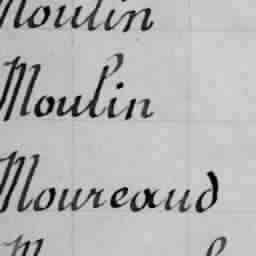 Moulin
Moulin
Moureaud